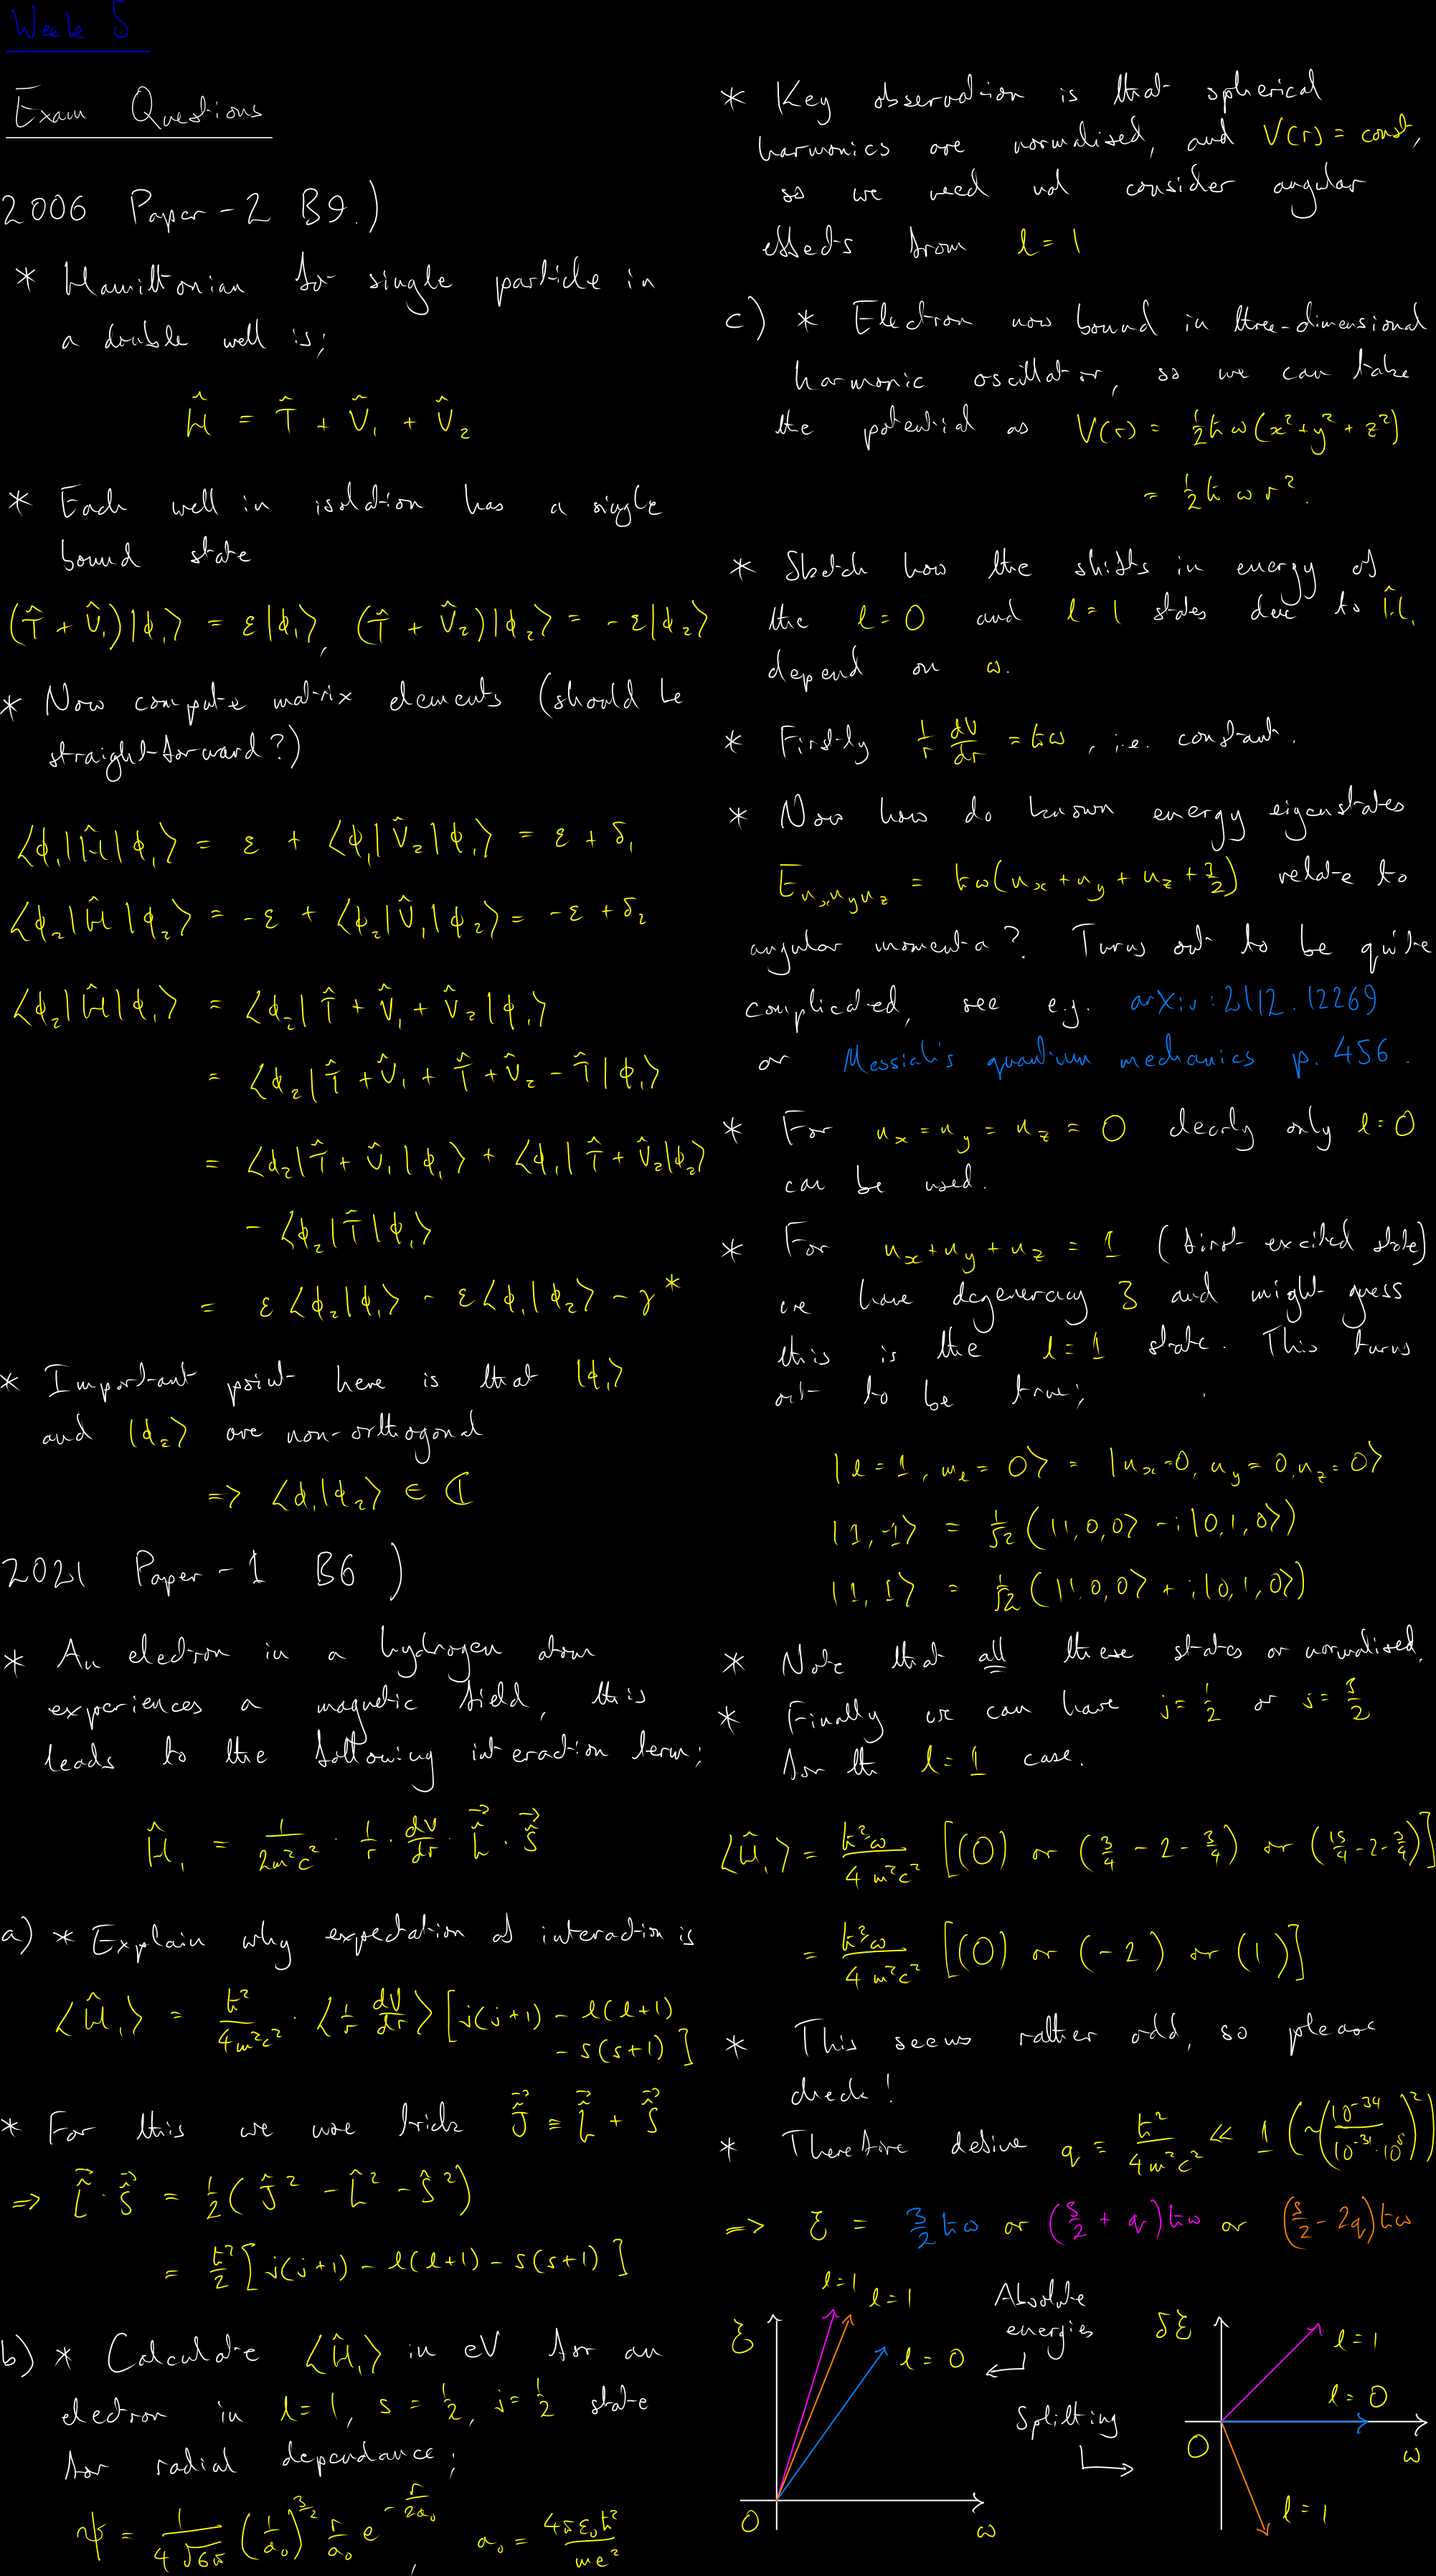 Week 5
Exam Questions
2006 Paper-2 B9.)
* Hamiltonian for single particle in
a double well is;
Ĥ = T̂ + V̂₁ + V̂₂
* Each well in isolation has a single
bound state
(T̂ + V̂₁)|ϕ₁⟩ = ε|ϕ₁⟩, (T̂ + V̂₂)|ϕ₂⟩ = -ε|ϕ₂⟩
* Now compute matrix elements (should be
straight-forward?)
⟨ϕ₁|Ĥ|ϕ₁⟩ = ε + ⟨ϕ₁|V̂₂|ϕ₁⟩ = ε + δ₁
⟨ϕ₂|Ĥ|ϕ₂⟩ = -ε + ⟨ϕ₂|V̂₁|ϕ₂⟩ = -ε + δ₂
⟨ϕ₂|Ĥ|ϕ₁⟩ = ⟨ϕ₂|T̂ + V̂₁ + V̂₂|ϕ₁⟩
= ⟨ϕ₂|T̂ + V̂₁ + T̂ + V̂₂ - T̂|ϕ₁⟩
= ⟨ϕ₂|T̂ + V̂₁|ϕ₁⟩ + ⟨ϕ₁|T̂ + V̂₂|ϕ₂⟩
- ⟨ϕ₂|T̂|ϕ₁⟩
= ε⟨ϕ₂|ϕ₁⟩ - ε⟨ϕ₁|ϕ₂⟩ - γ*
* Important point here is that |ϕ₁⟩
and |ϕ₂⟩ are non-orthogonal
=> ⟨ϕ₁|ϕ₂⟩ ∈ ℂ
2021 Paper-1 B6 )
* An electron in a hydrogen atom
experiences a magnetic field, this
leads to the following interaction term;
Ĥ₁ = 1/2m²c² · 1/r · dV/dr · L̂ · Ŝ
a) * Explain why expectation of interaction is
⟨Ĥ₁⟩ = ħ²/4m²c² · ⟨1/r dV/dr⟩ [j(j+1) - l(l+1)
- s(s+1)]
* For this we use trick Ĵ ≡ L̂ + Ŝ
=> L̂ · Ŝ = 1/2(Ĵ² - L̂² - Ŝ²)
= ħ²/2 [j(j+1) - l(l+1) - s(s+1)]
b) * Calculate ⟨Ĥ₁⟩ in eV for an
electron in l=1, s = 1/2, j = 1/2 state
for radial dependance;
ψ = 1/4√6π (1/a₀)^3/2 r/a₀ e^-r/2a₀, a₀ = 4πε₀ħ²/me²
* Key observation is that spherical
harmonics are normalised, and V(r) = const,
so we need not consider angular
effects from l = 1
c) * Electron now bound in three-dimensional
harmonic oscillator, so we can take
the potential as V(r) = 1/2ħω(x²+y²+z²)
= 1/2ħωr².
* Sketch how the shifts in energy of
the l = 0 and l = 1 states due to Ĥ₁
depend on ω.
* Firstly 1/r dV/dr = ħω, i.e. constant.
* Now how do known energy eigenstates
E_nxnynz = ħω(nx + ny + nz + 3/2) relate to
angular momenta? Turns out to be quite
complicated, see e.g. arXiv:2112.12269
or Messiah's quantum mechanics p. 456.
* For nx = ny = nz = 0 clearly only l=0
can be used.
* For nx + ny + nz = 1 (first excited state)
we have degeneracy 3 and might guess
this is the l = 1 state. This turns
out to be true;
|l = 1, ml = 0⟩ = |nx=0, ny = 0, nz = 0⟩
|1,-1⟩ = 1/√2 (|1,0,0⟩ - i|0,1,0⟩)
|1, 1⟩ = 1/√2 (|1,0,0⟩ + i|0,1,0⟩)
* Note that all these states or normalised.
* Finally we can have j = 1/2 or j = 3/2
for th l = 1 case.
⟨Ĥ₁⟩ = ħ³ω/4m²c² [(0) or (3/4 - 2 - 3/4) or (15/4 - 2 - 3/4)]
= ħ³ω/4m²c² [(0) or (-2) or (1)]
* This seems rather odd, so please
check!
* Therefore define q ≡ ħ²/4m²c² << 1 (~(10^-34/10^-31·10^8)²)
=> ξ = 3/2ħω or (5/2 + q)ħω or (5/2 - 2q)ħω
l=1
l=1
ξ
l = 0
0
ω
Absolute
energies
Splitting
δξ
l=1
l = 0
0
ω
l=1